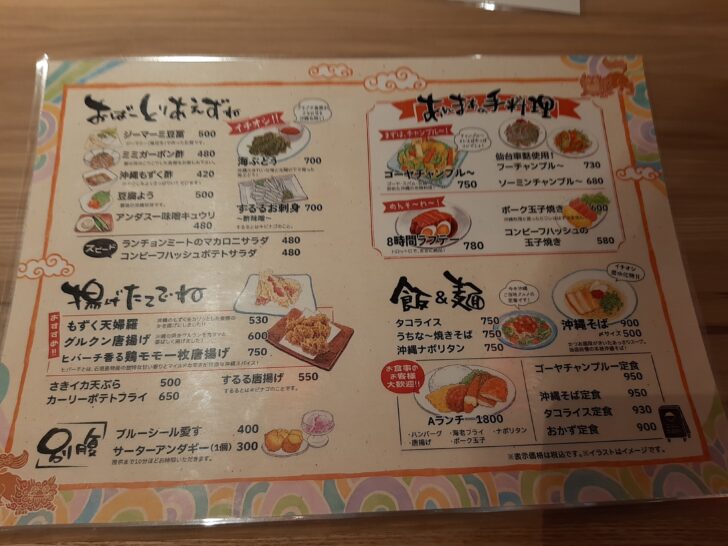 おばーとりあえずね
ジーマーミ豆腐 500
ミミガーポン酢 480
沖縄もずく酢 420
豆腐よう 500
アンダスー味噌キュウリ 480
イチオシ!!
海ぶどう 700
するるお刺身 700
～酢味噌～
スピード
ランチョンミートのマカロニサラダ 480
コンビーフハッシュポテトサラダ 480
揚げたてでね
おすすめ!!
もずく天婦羅 530
グルクン唐揚げ 600
ヒバーチ香る鶏モモ一枚唐揚げ 750
さきイカ天ぷら 500
カーリーポテトフライ 650
するる唐揚げ 550
するるとはキビナゴのことです。
別腹
ブルーシール愛す 400
サーターアンダギー(1個) 300
提供まで10分ほどお時間いただきます。
手料理
まずは、チャンプルー!
ゴーヤチャンプル～ 750
仙台車麩使用!
フーチャンプル～ 730
ソーミンチャンプル～ 680
めんそ～れ～!
8時間ラフテー 780
ポーク玉子焼き 600
コンビーフハッシュの
玉子焼き 580
飯&麺
タコライス 750
うちな～焼きそば 750
沖縄ナポリタン 750
イチオシ
沖縄そば 900
サイズ 500
お食事の
お客様
大歓迎!!
Aランチ 1800
・ハンバーグ ・海老フライ ・ナポリタン
・唐揚げ ・ポーク玉子
ゴーヤチャンプルー定食
950
沖縄そば定食 950
タコライス定食 930
おかず定食 900
※表示価格は税込です。※イラストはイメージです。